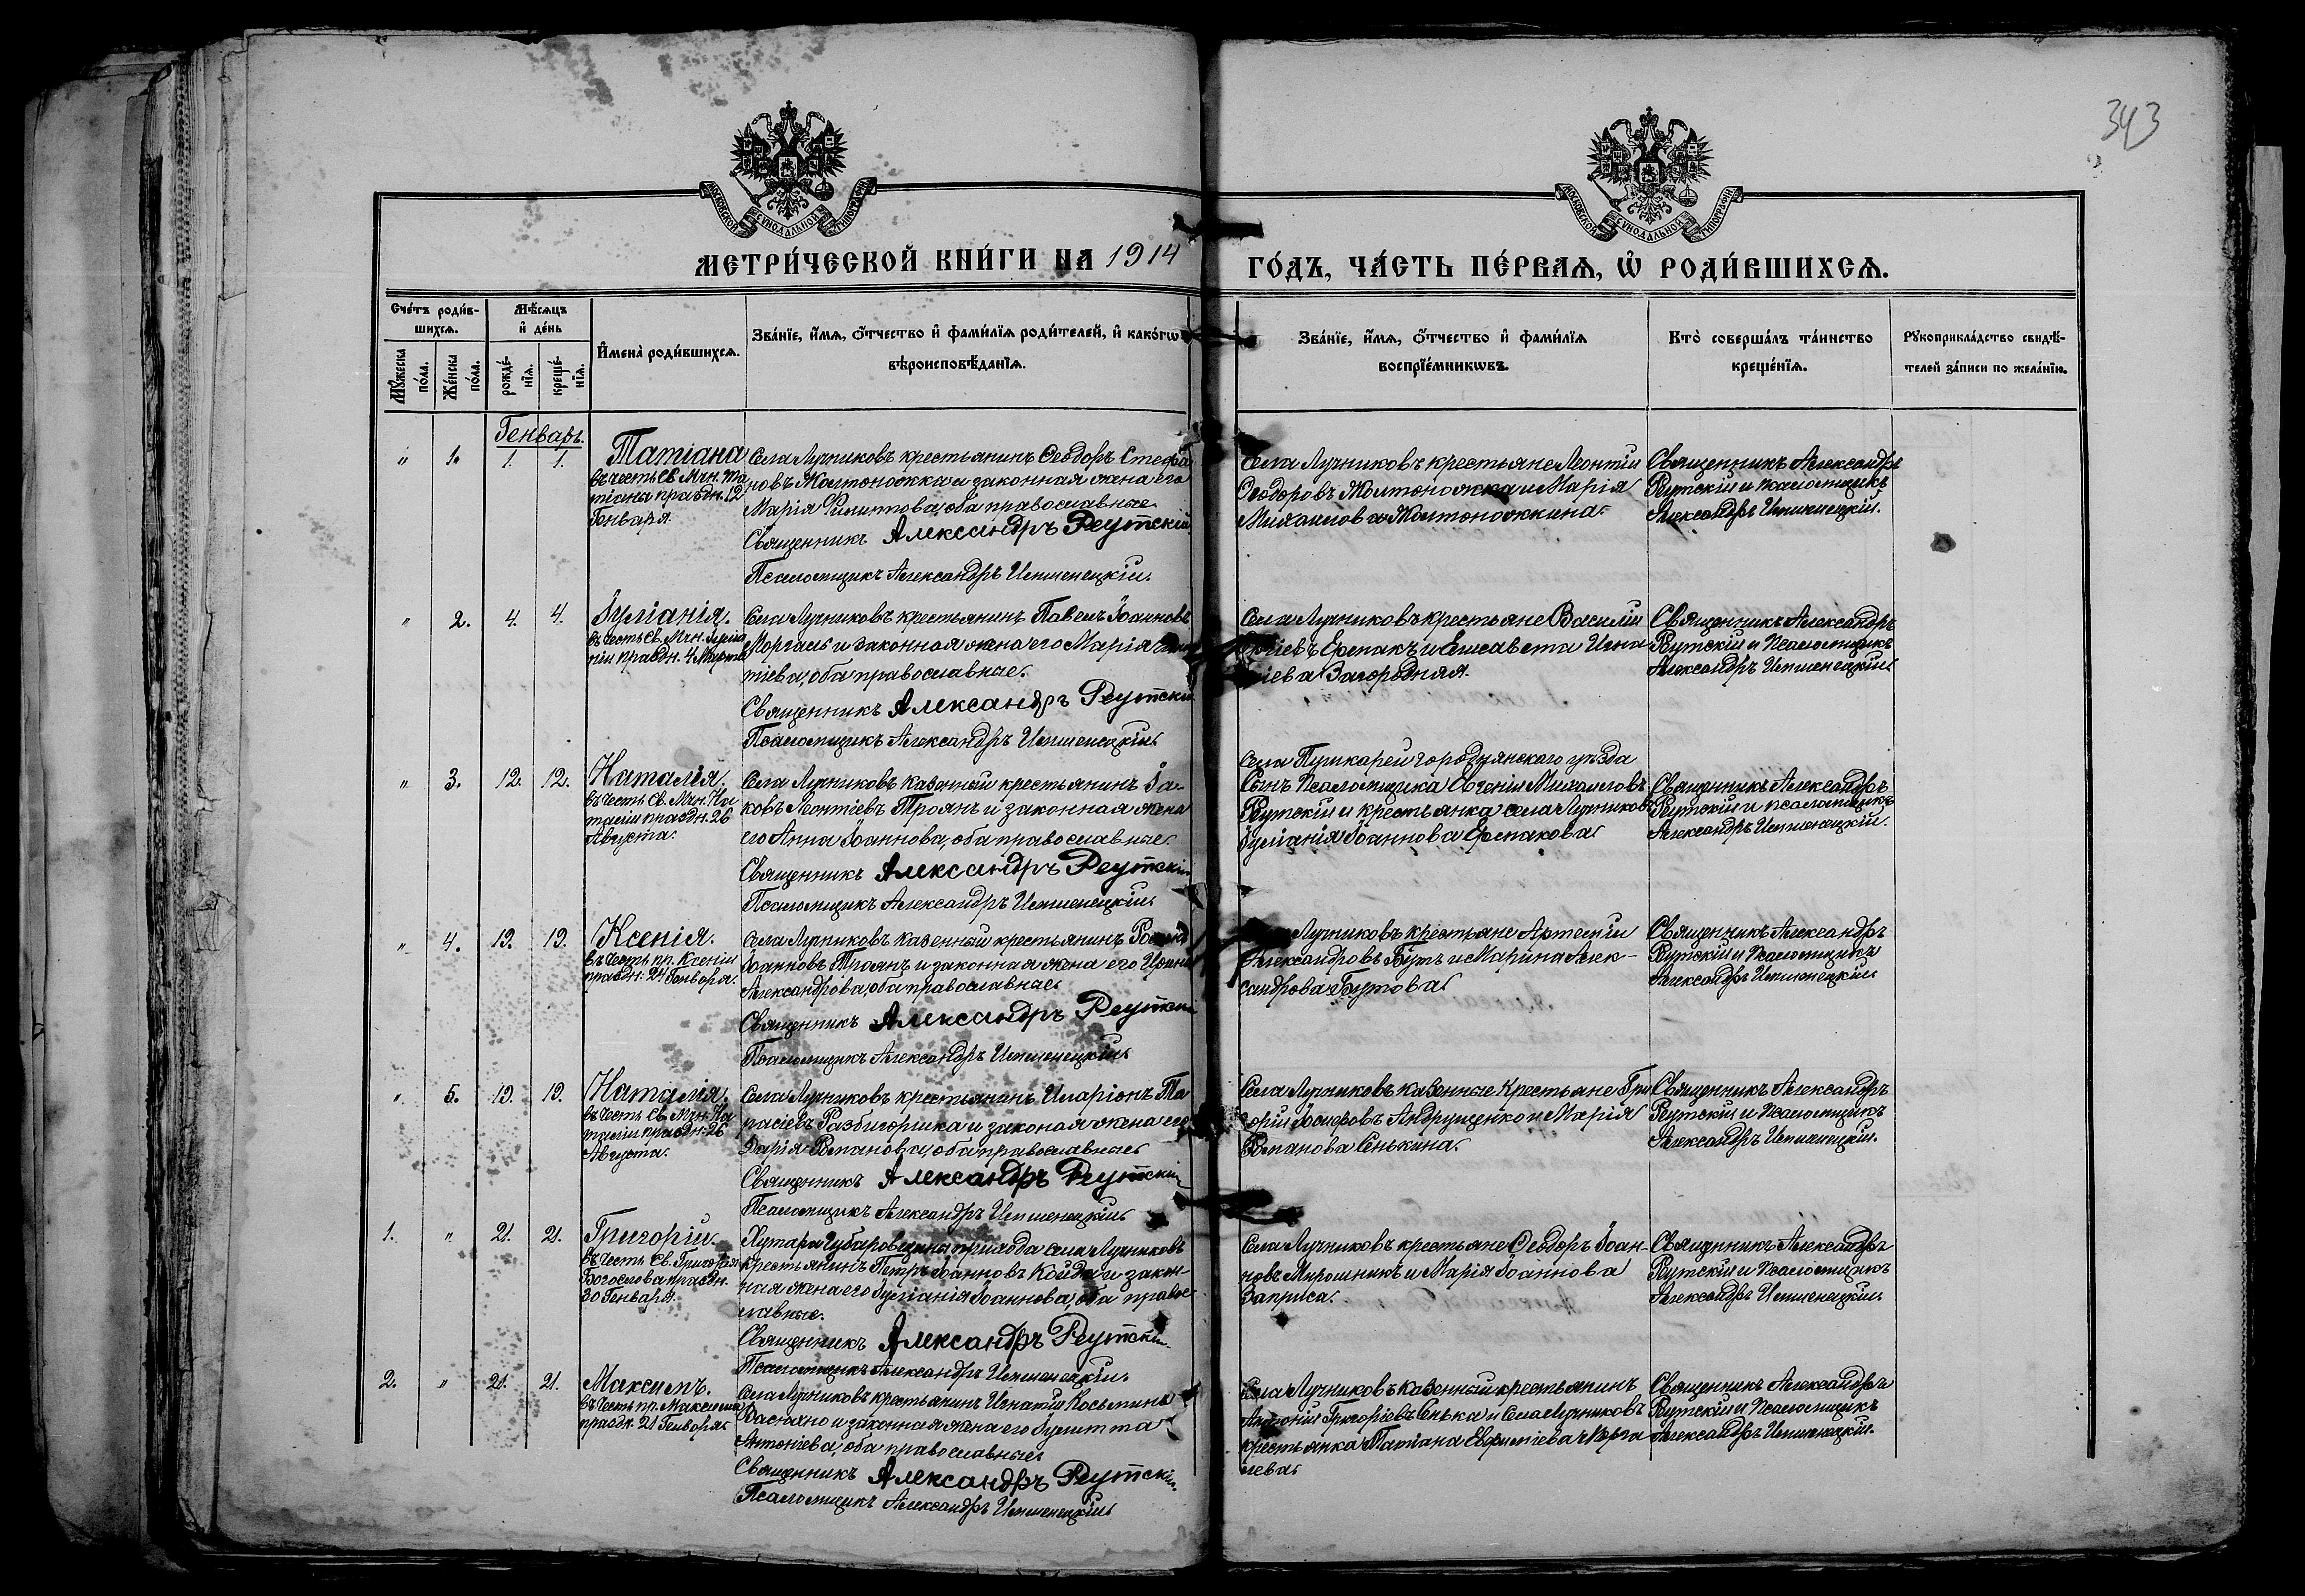 343
МОСКОВСКОЙ СѴНОДАЛЬНОЙ ТИПОГРАФІИ
МОСКОВСКОЙ СѴНОДАЛЬНОЙ ТИПОГРАФІИ
МЕТРИ́ЧЕСКОЙ КНИ́ГИ НА 1914 ГО́ДЪ, ЧА́СТЬ ПЕ́РВАѦ, Ѡ҆ РОДИ́ВШИХСѦ.
Сче́тъ роди́в-
шихсѧ.
Мѣ́сѧцъ
и҆ де́нь
Мꙋ́жеска
по́ла.
Же́нска
по́ла.
рожде́-
нїѧ.
креще́-
нїѧ.
И҆мена̀ роди́вшихсѧ.
Зва́нїе, и҆́мѧ, ѻ҆́тчество и҆ фами́лїѧ роди́телей, и҆ како́гѡ
вѣроисповѣ́данїѧ.
Зва́нїе, и҆́мѧ, ѻ҆́тчество и҆ фами́лїѧ
воспрїе́мникѡвъ.
Кто̀ соверша́лъ та́инство
креще́нїѧ.
Рꙋкоприкла́дство свидѣ́-
телей за́писи по жела́нїю.
Генварь.
" 1. 1. 1.
Татіана
въ честь Св. Мчн. Та
тіаны праздн. 12
Генваря.
Села Лучниковъ крестьянинъ Ѳеодоръ Стефа
новъ Желтоножка и законная жена его
Марія Филиппова, оба православные.
Священникъ Александръ Реутскій
Псаломщикъ Александръ
Села Лучниковъ крестьяне Леонтій
Ѳеодоровъ Желтоножка и Марія
Михаилова Желтоножкина.
Священникъ Александръ
Реутскій и псаломщикъ
Александръ
" 2. 4. 4.
Іуліанія.
въ честь Св. Мчн. Іуліа
ніи праздн. 4 Марта
Села Лучниковъ крестьянинъ Павелъ Іоанновъ
и законная жена его Марія
тіева, оба православные.
Священникъ Александръ Реутскій
Псаломщикъ Александръ
Села Лучниковъ крестьяне Василій
Ермакъ и Елисавета Игна
тіева Загородняя.
Священникъ Александръ
Реутскій и Псаломщикъ
Александръ
" 3. 12. 12.
Наталія.
въ честь Св. Мчн. На
таліи праздн. 26
Августа.
Села Лучниковъ казенный крестьянинъ Іа-
ковъ Леонтіевъ Троянъ и законная жена
его Анна Іоаннова, оба православные.
Священникъ Александръ Реутскій
Псаломщикъ Александръ
Села Пушкарей городнянскаго уѣзда
Сынъ Псаломщика Евгеній Михаиловъ
Реутскій и крестьянка села Лучниковъ
Іуліанія Іоаннова Ермакова
Священникъ Александръ
Реутскій и псаломщикъ
Александръ
" 4. 19. 19.
Ксенія.
въ честь пр. Ксеніи
праздн. 24 Генваря.
Села Лучниковъ казенный крестьянинъ Романъ
Іоанновъ Троянъ и законная жена его Ирина
Александрова, оба православные
Священникъ Александръ Реутскій
Псаломщикъ Александръ
Лучниковъ крестьяне Артемій
Александровъ Бутъ и Марина Алек-
сандрова Бутова
Священникъ Александръ
Реутскій и Псаломщикъ
Александръ
" 5. 19. 19.
Наталія.
въ честь Св. Мчн. На
таліи праздн. 26
Августа.
Села Лучниковъ крестьянинъ Иларіонъ Та
расіевъ Разбигоршка и законая жена его
Дарія Романова, оба православные
Священникъ Александръ Реутскій
Псаломщикъ Александръ
Села Лучниковъ казенные крестьяне Гри
горій Іосифовъ Андрущенко и Марія
Романова Сенькина.
Священникъ Александръ
Реутскій и Псаломщикъ
Александръ
1. " 21. 21.
Григорій.
въ честь Св. Григорія
Богослова праздн.
30 Генваря.
Хутара Губаровщина прихода села Лучниковъ
крестьянинъ Петръ Іоанновъ Койда и закон-
ная жена его Іуліанія Іоаннова, оба правос
лавные.
Священникъ Александръ Реутскій
Псаломщикъ Александръ
Села Лучниковъ крестьяне Ѳеодоръ Іоан-
новъ Мирошникъ и Марія Іоаннова
Заприса.
Священникъ Александръ
Реутскій и Псаломщикъ
Александръ
2. " 21. 21.
Максимъ.
въ честь пр. Максима
праздн. 21 Генваря
Села Лучниковъ крестьянинъ Игнатій Косьминъ
Васюхно и законная жена его Іулитта
Антоніева, оба православные
Священникъ Александръ Реутскій.
Псаломщикъ Александръ
Села Лучниковъ казенный крестьянинъ
Антоній Григоріевъ Сенька и села Лучниковъ
крестьянка Татіана Евфиміева
лева
Священникъ Александръ
Реутскій и Псаломщикъ
Александръ